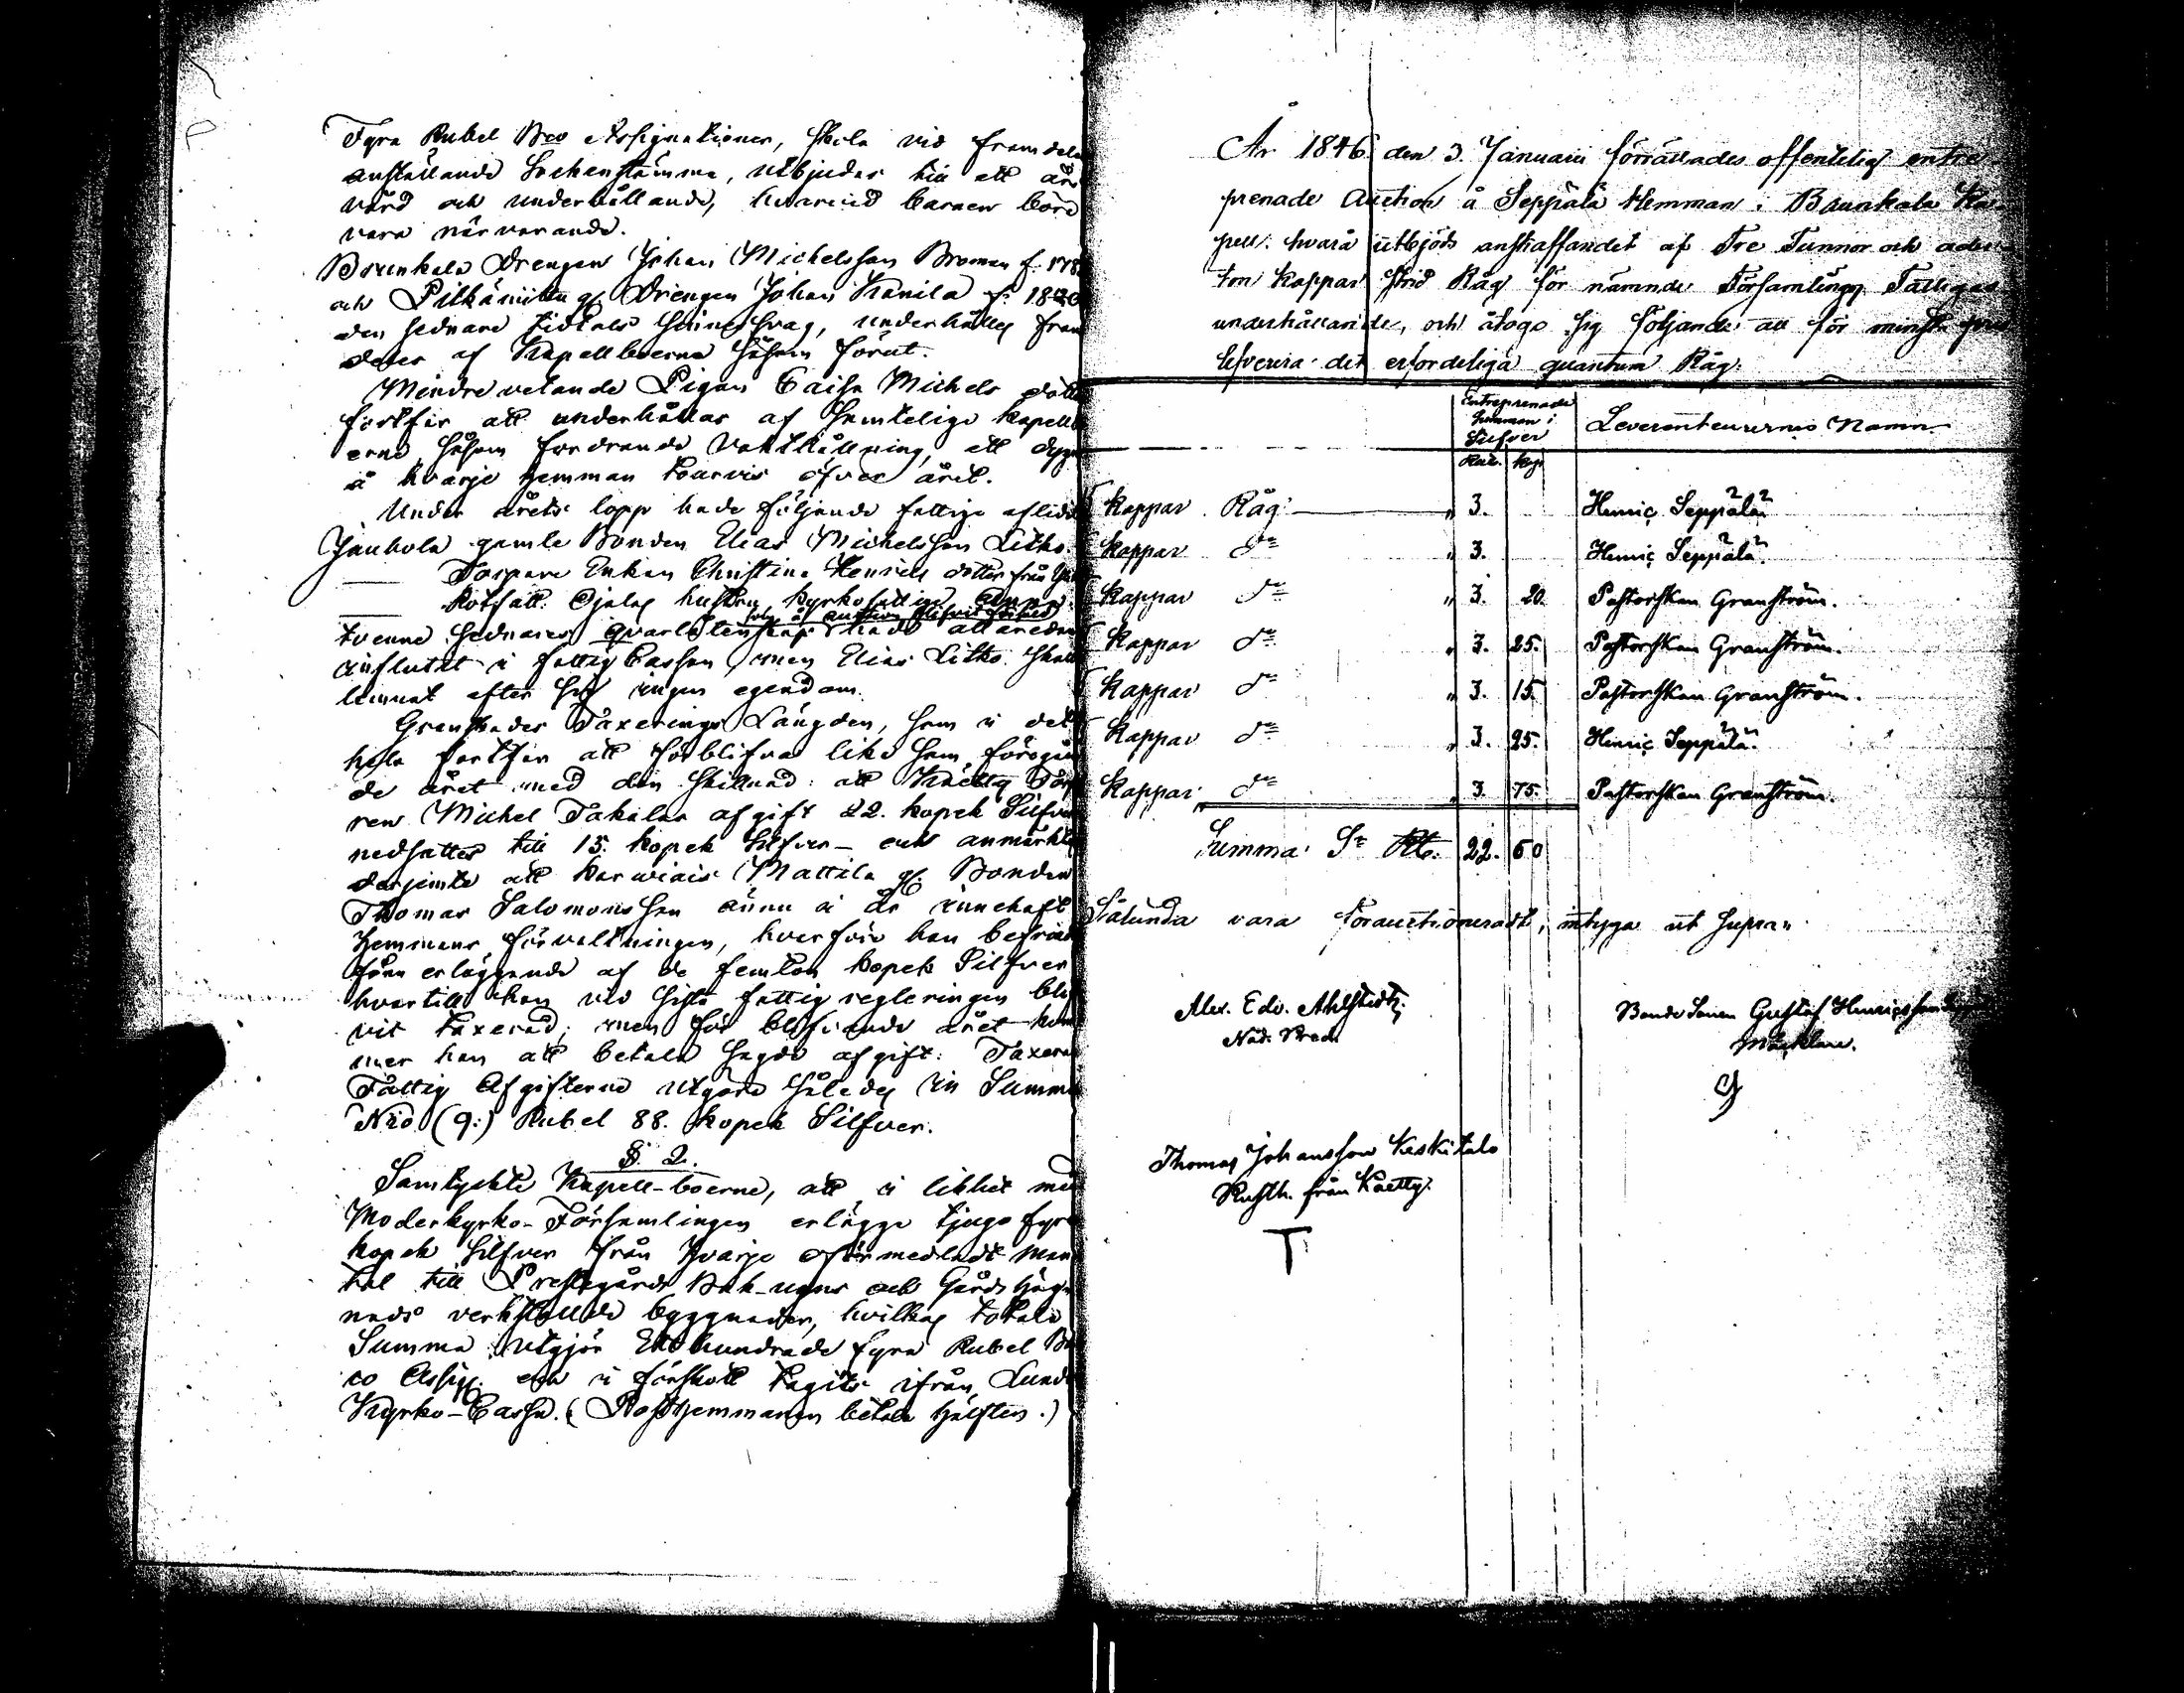 Fyra Rubel Bco Assignationer, skola vid framdeles
anställande Sockenstämma, utbjudas till ett års
vård och underhållande, hvarvid barnen böra
vara närvarande.
Brunkala Drengen Johan Michelsson Broman f. 178
och Pilkämittu gl. Drengen Johan Kranila f. 1820
den sednare tidtals sinnessvag, underhålles fram
deles af Kapellboerne såsom förut.
Mindre vetande Pigan Caisa Michels dotter
fortfar att underhållas af samtelige Kapellbo
erne, såsom fordrande vakthållning, ett dygn
å hvarje hemman tourvis öfver året.
Under årets lopp hade följande fattige aflidit
Jänhola gamle Bonden Elias Michelsson Litko.
Torpare Enkan Christina Henrics dotter från
Rotfatt. Ojalas hustru, kyrkofattige
tvenne sednares qvarlåtenskap hade allaredan
influtit i fattig Cassan, men Elias Litko skall
lemnat efter sig ingen egendom.
Granskades Taxerings Längden, som i det
hela fortfar att förblifva lika som föregåen
de året med den skillnad: att Kraetty Torpa
ren Michel Takalas afgift 22. kopek Silfver
nedsattes till 15. kopek Silfver - och anmärktes
derjemte att Karwiais Mattila gl. Bonden
Thomas Salomonsson ännu i år innehaft
Hemmans förvaltningen, hvarföre han befriades
från erläggande af de femton kopek Silfver
hvartill han vid sista fattig regleringen blif
vit taxerad; men för blifvande året kom
mer han att betala sagde afgift. Taxerade
Fattig Afgifterne utgöra således in Summa
Nio (9:) Rubel 88. kopek Silfver.
§. 2.
Samtyckte Kapell-boerne, att i likhet med
Moderkyrko-Församlingen erlägga tjugo fyra
kopek Silfver från hvarje oförmedladt man
tal till Prestegårds Bak-ugns och Gårds häg
nads verkställde byggnader, hvilkas totala
Summa utgjör Ett hundrade fyra Rubel Ban
co Assign. och i förskott tagits ifrån Lunds
Kyrko-Cassa. (Rusthemmanen betala hälften.)
År 1846 den 3. Januarii förrättades offentelig entre
prenade Auction å Seppälä Hemman i Brunkala Ka
pell. hvarå utbjöds anskaffandet af Tre Tunnor och ader
ton kappar Strid Råg för nämnde Församlings Fattigas
underhållande, och åtogo sig följande att för minsta pris
lefverera det erforderliga quantum Råg:
Entreprenade Summan i Silfver
Leverenteurernes Namn
Rub. kop.
kappar Råg " 3. Henric Seppälä
kappar do " 3. Henric Seppälä
kappar do " 3. 20. Pastorskan Granström.
kappar do " 3. 25. Pastorskan Granström.
kappar do " 3. 15. Pastorskan Granström.
kappar do " 3. 25. Henric Seppälä.
kappar do " 3. 75. Pastorskan Granström.
Summa Sr Rb. 22. 60
Sålunda vara förauctioneradt, intyga ut supra"
Alex. Edv. Ahlstedt,
Nåd. Pred.
Bonde Sonen Gustaf Henricsson
Mäcklare.
G
Thomas Johansson Keskitalo
Rusth. från Kaetty.
T